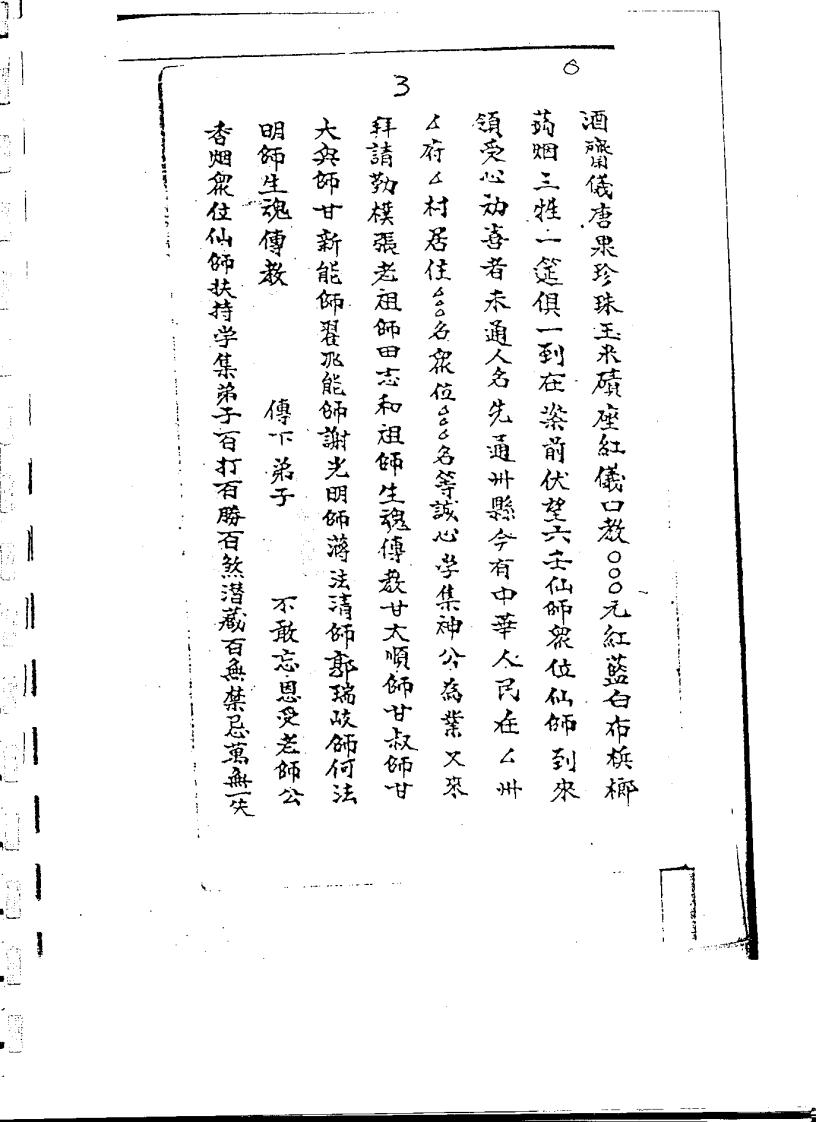 3
酒齋儀唐果珍珠玉米磧座紅儀口教〇〇〇元紅藍白布梹榔
蒟烟三牲一筵俱一到在案前伏望六壬仙師眾位仙師到來
領受心劝喜者未通人名先通卅縣今有中華人民在厶卅
厶府厶村居住厶〇〇名眾位〇〇〇名等誠心学集神公為業又來
拜請勤樸張老祖師田志和祖師生魂傳教甘大順師甘叔師甘
大兴師甘新能師翟兆能師謝光明師蒋法清師郭瑞岐師何法
明師生魂傳教 傳下弟子 不敢忘恩受老師公
香烟眾位仙師扶持学集弟子百打百勝百煞潜藏百無禁忌萬無一失